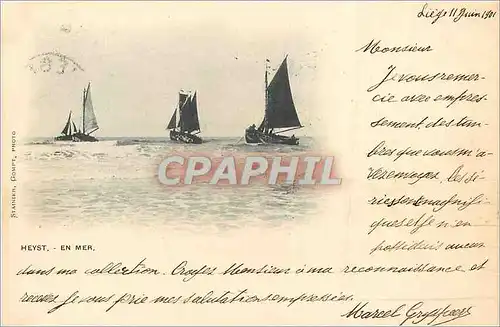 Liége 11 Juin 1901
Monsieur
Je vous remer-
cie avec empres-
sement, des tim-
bres que vous m'a-
vez envoyés. Les sé-
ries sont magnifi-
ques et je n'en
possédais aucun
dans ma collection. Croyez Monsieur à ma reconnaissance et
recevez je vous prie mes salutations empressées.
Marcel
CPAPHIL
STAINIER, COMPT. PHOTO
HEYST. - EN MER.